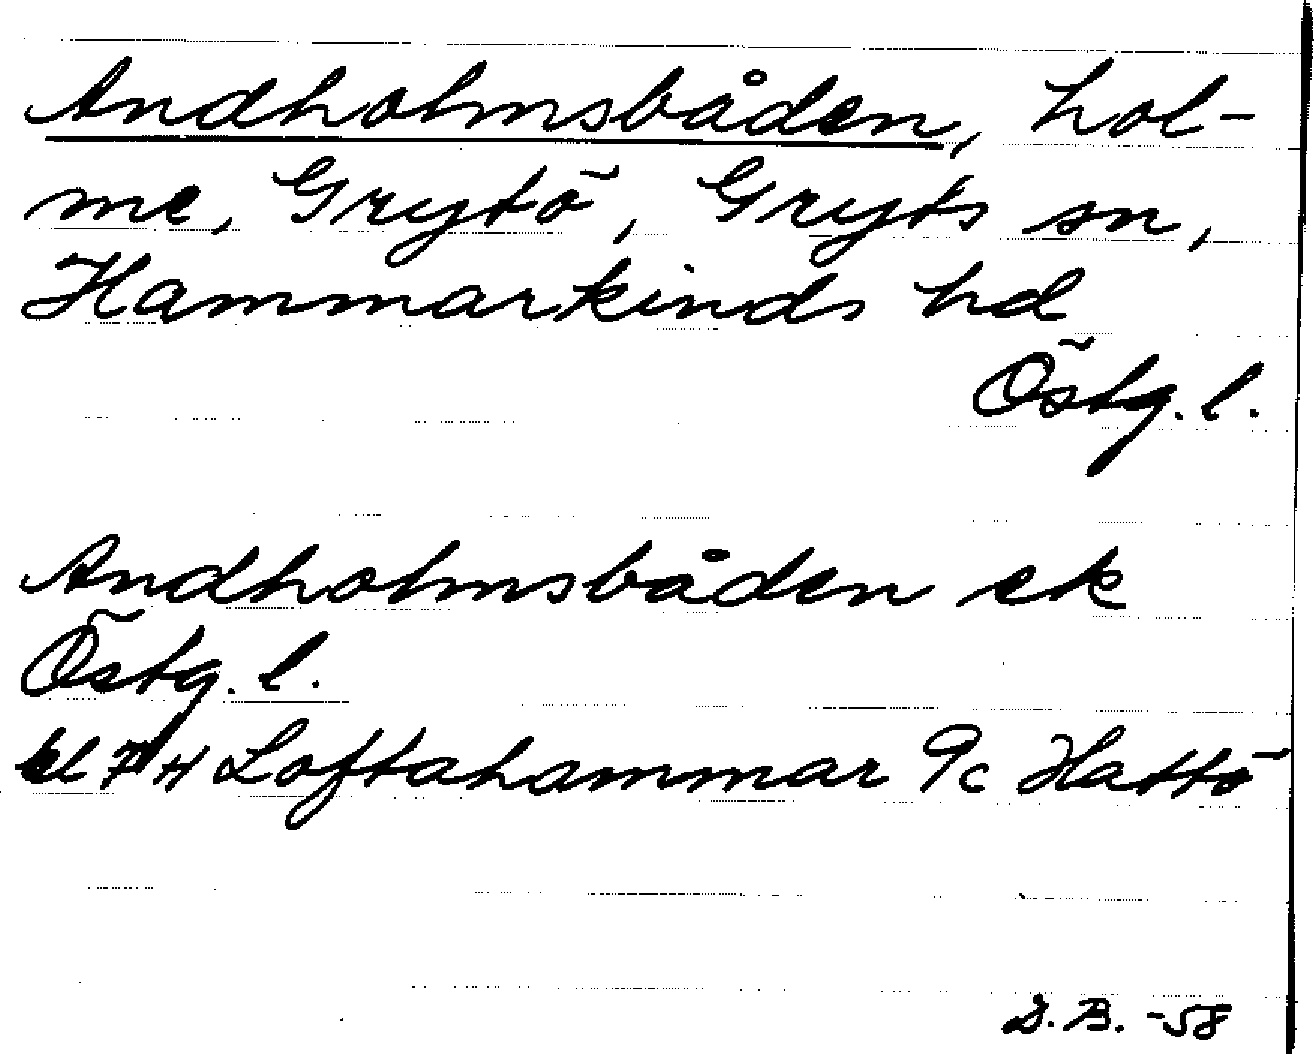 Andholmsbåden, hol-
me, Grytö, Gryts sn,
Hammarkinds hd
Östg. l.
Andholmsbåden ek
Östg. l.
bl 7 H Loftahammar 9c Hattö
D.B. -58